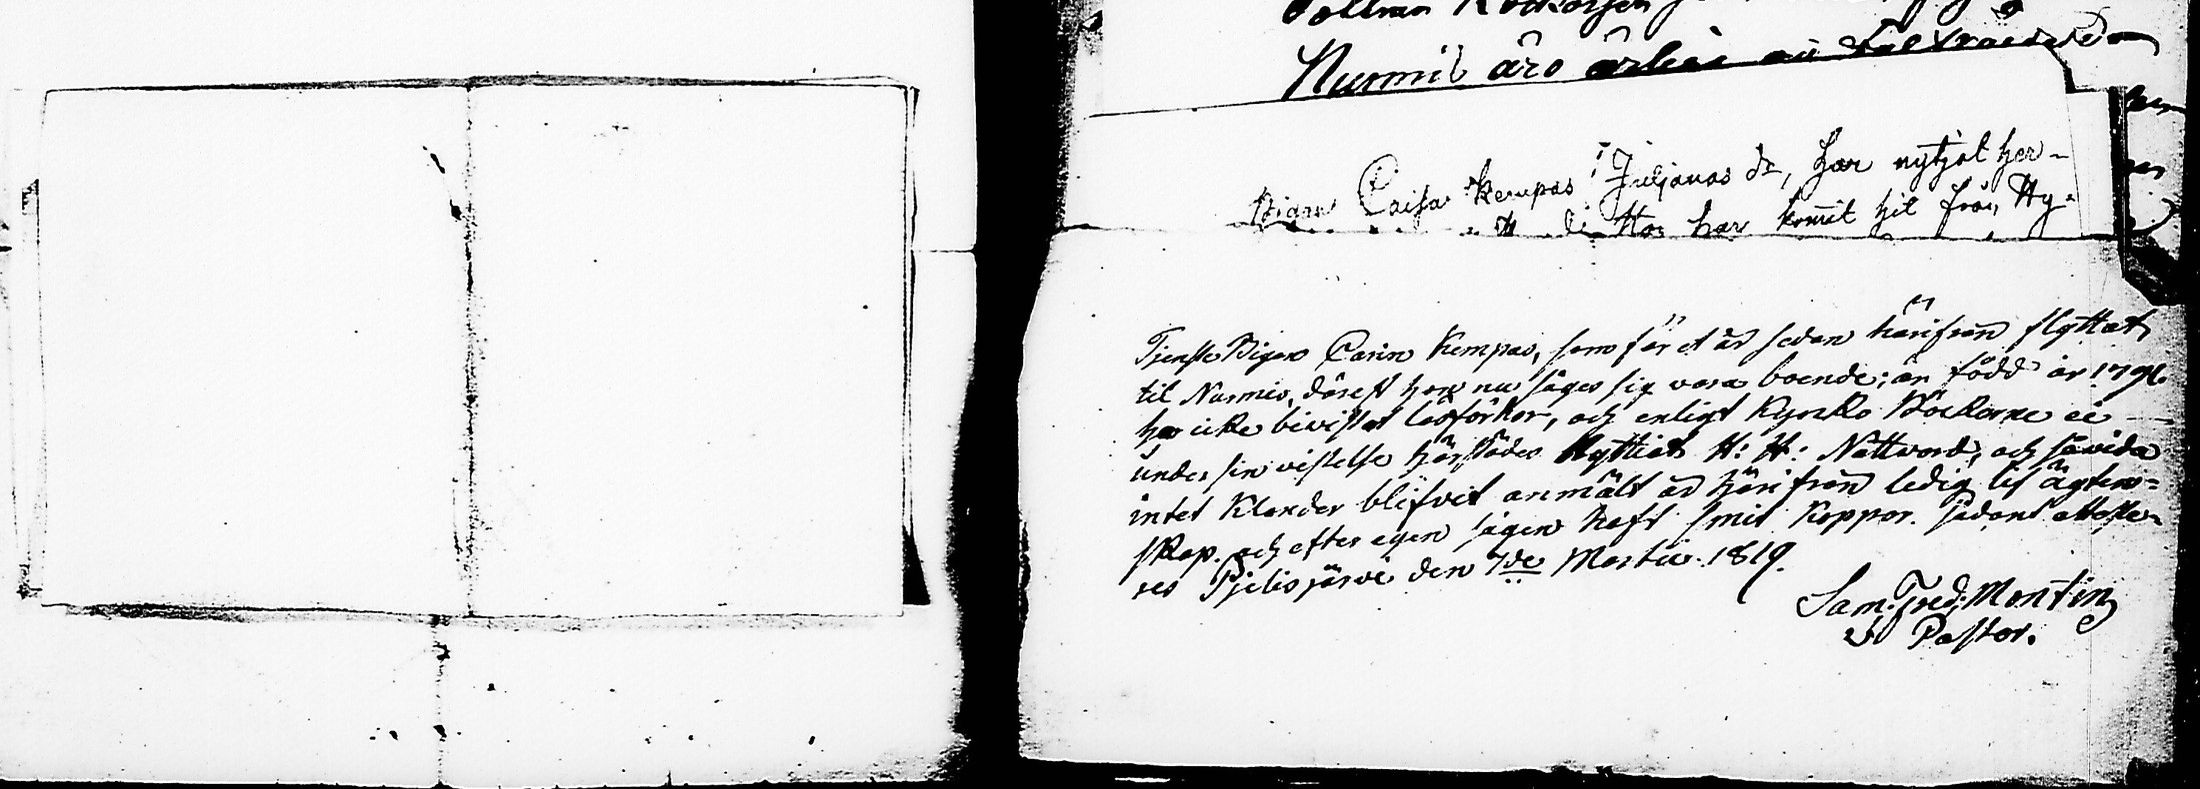 Nurmis äro
Pigan Caisa Kempas Juljanas dr, har nytjat her-
Hon har komit hit från Hy-
Tjenste Pigan Carin Kempas, som för et år sedan härifrån flyttat
til Nurmis, därest hon nu säges sig vara boende; är född år 1796
har icke bivistat läsförhör, och enligt Kyrko Böckerne ei
under sin vistelse härstädes Nyttiat H: H: Nattvard, och såvida
intet Klander blifvit anmält är härifrån ledig til ägten-
skap. och efter egen sägen haft smit Koppor. sådant atteste-
res Pjelisjärvi den 7de Martii 1819.
Sam. Fred: Montin
Pastor.